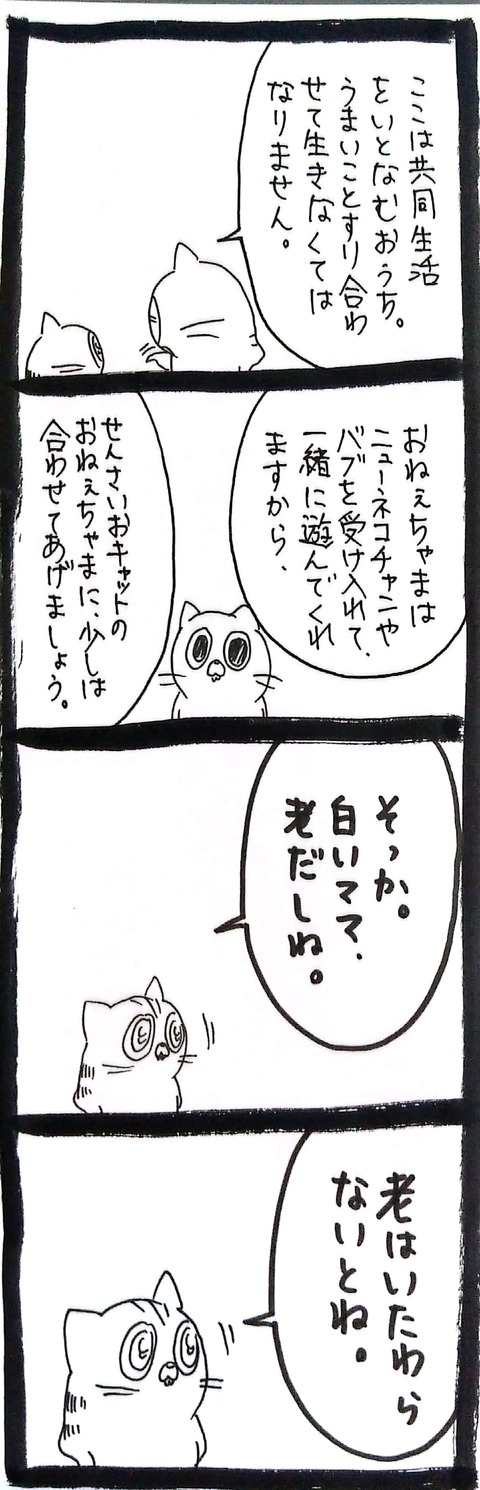 ここは共同生活
をいとなむおうち。
うまいことすり合わ
せて生きなくては
なりません。
おねぇちゃまは
ニューネコチャンや
バブを受け入れて、
一緒に遊んでくれ
ますから、
せんさいおキャットの
おねぇちゃまに、少しは
合わせてあげましょう。
そっか。
白いママ、
老だしね。
老はいたわら
ないとね。